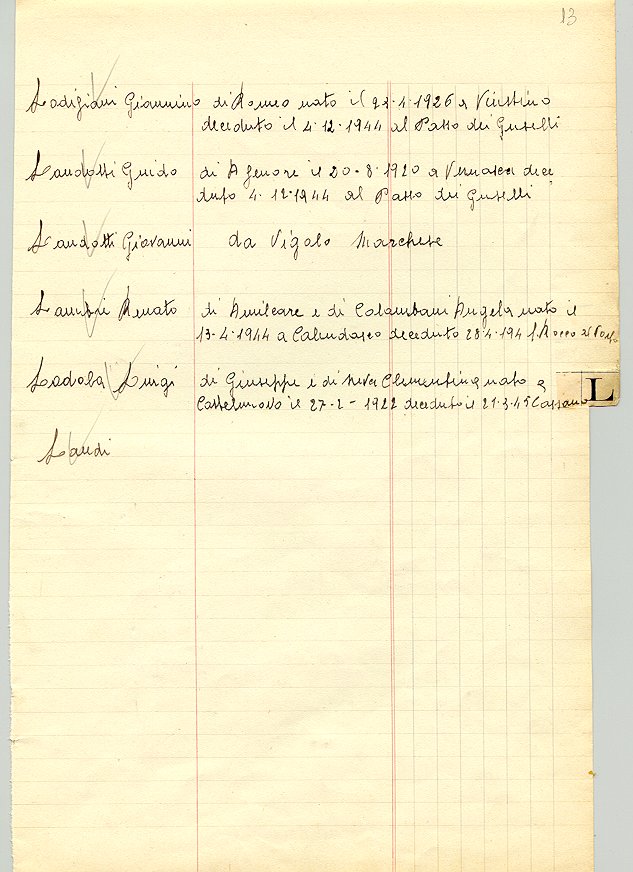 13
Ladigiani Giannino di Romeo nato il 22-4-1926 a Vicistino
deceduto il 4-12-1944 al Passo dei Guselli
Landotti Guido di Agenore il 20-8-1920 a Vernasca dece
duto 4-12-1944 al Passo dei Guselli
Landotti Giovanni da Vigolo Marchese
Lambri Renato di Amilcare e di Colombani Angela nato il
13-4-1944 a Calendasco deceduto 28-4-194 S. Rocco al Porto
Ladoba Luigi di Giuseppe e di Neva Clementina nato a
Castelnovo il 27-2-1922 deceduto il 21-3-45 Cassano
L
Landi